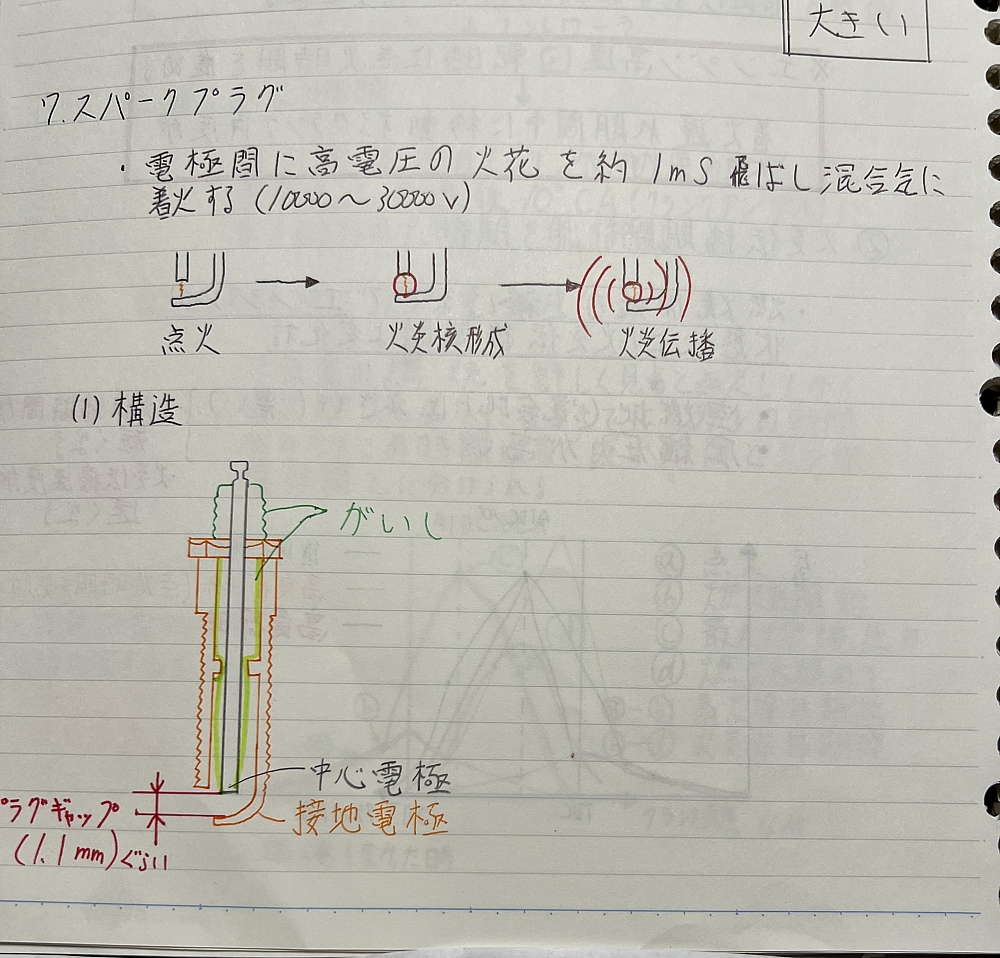 大きい
7.スパークプラグ
・電極間に高電圧の火花を約1mS飛ばし混合気に
着火する(10000～30000V)
点火
火炎核形成
火炎伝播
(1)構造
がいし
中心電極
接地電極
プラグギャップ
(1.1mm)ぐらい